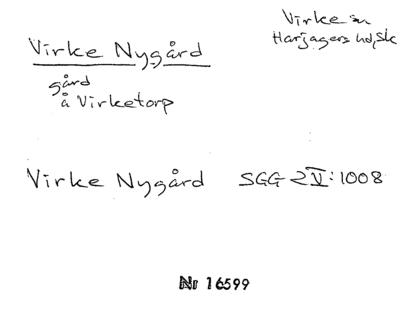 Virke Nygård
Virke sn
Harjagers hd, Sk
gård
å Virketorp
Virke Nygård SGG 2V:1008
Nr 16599